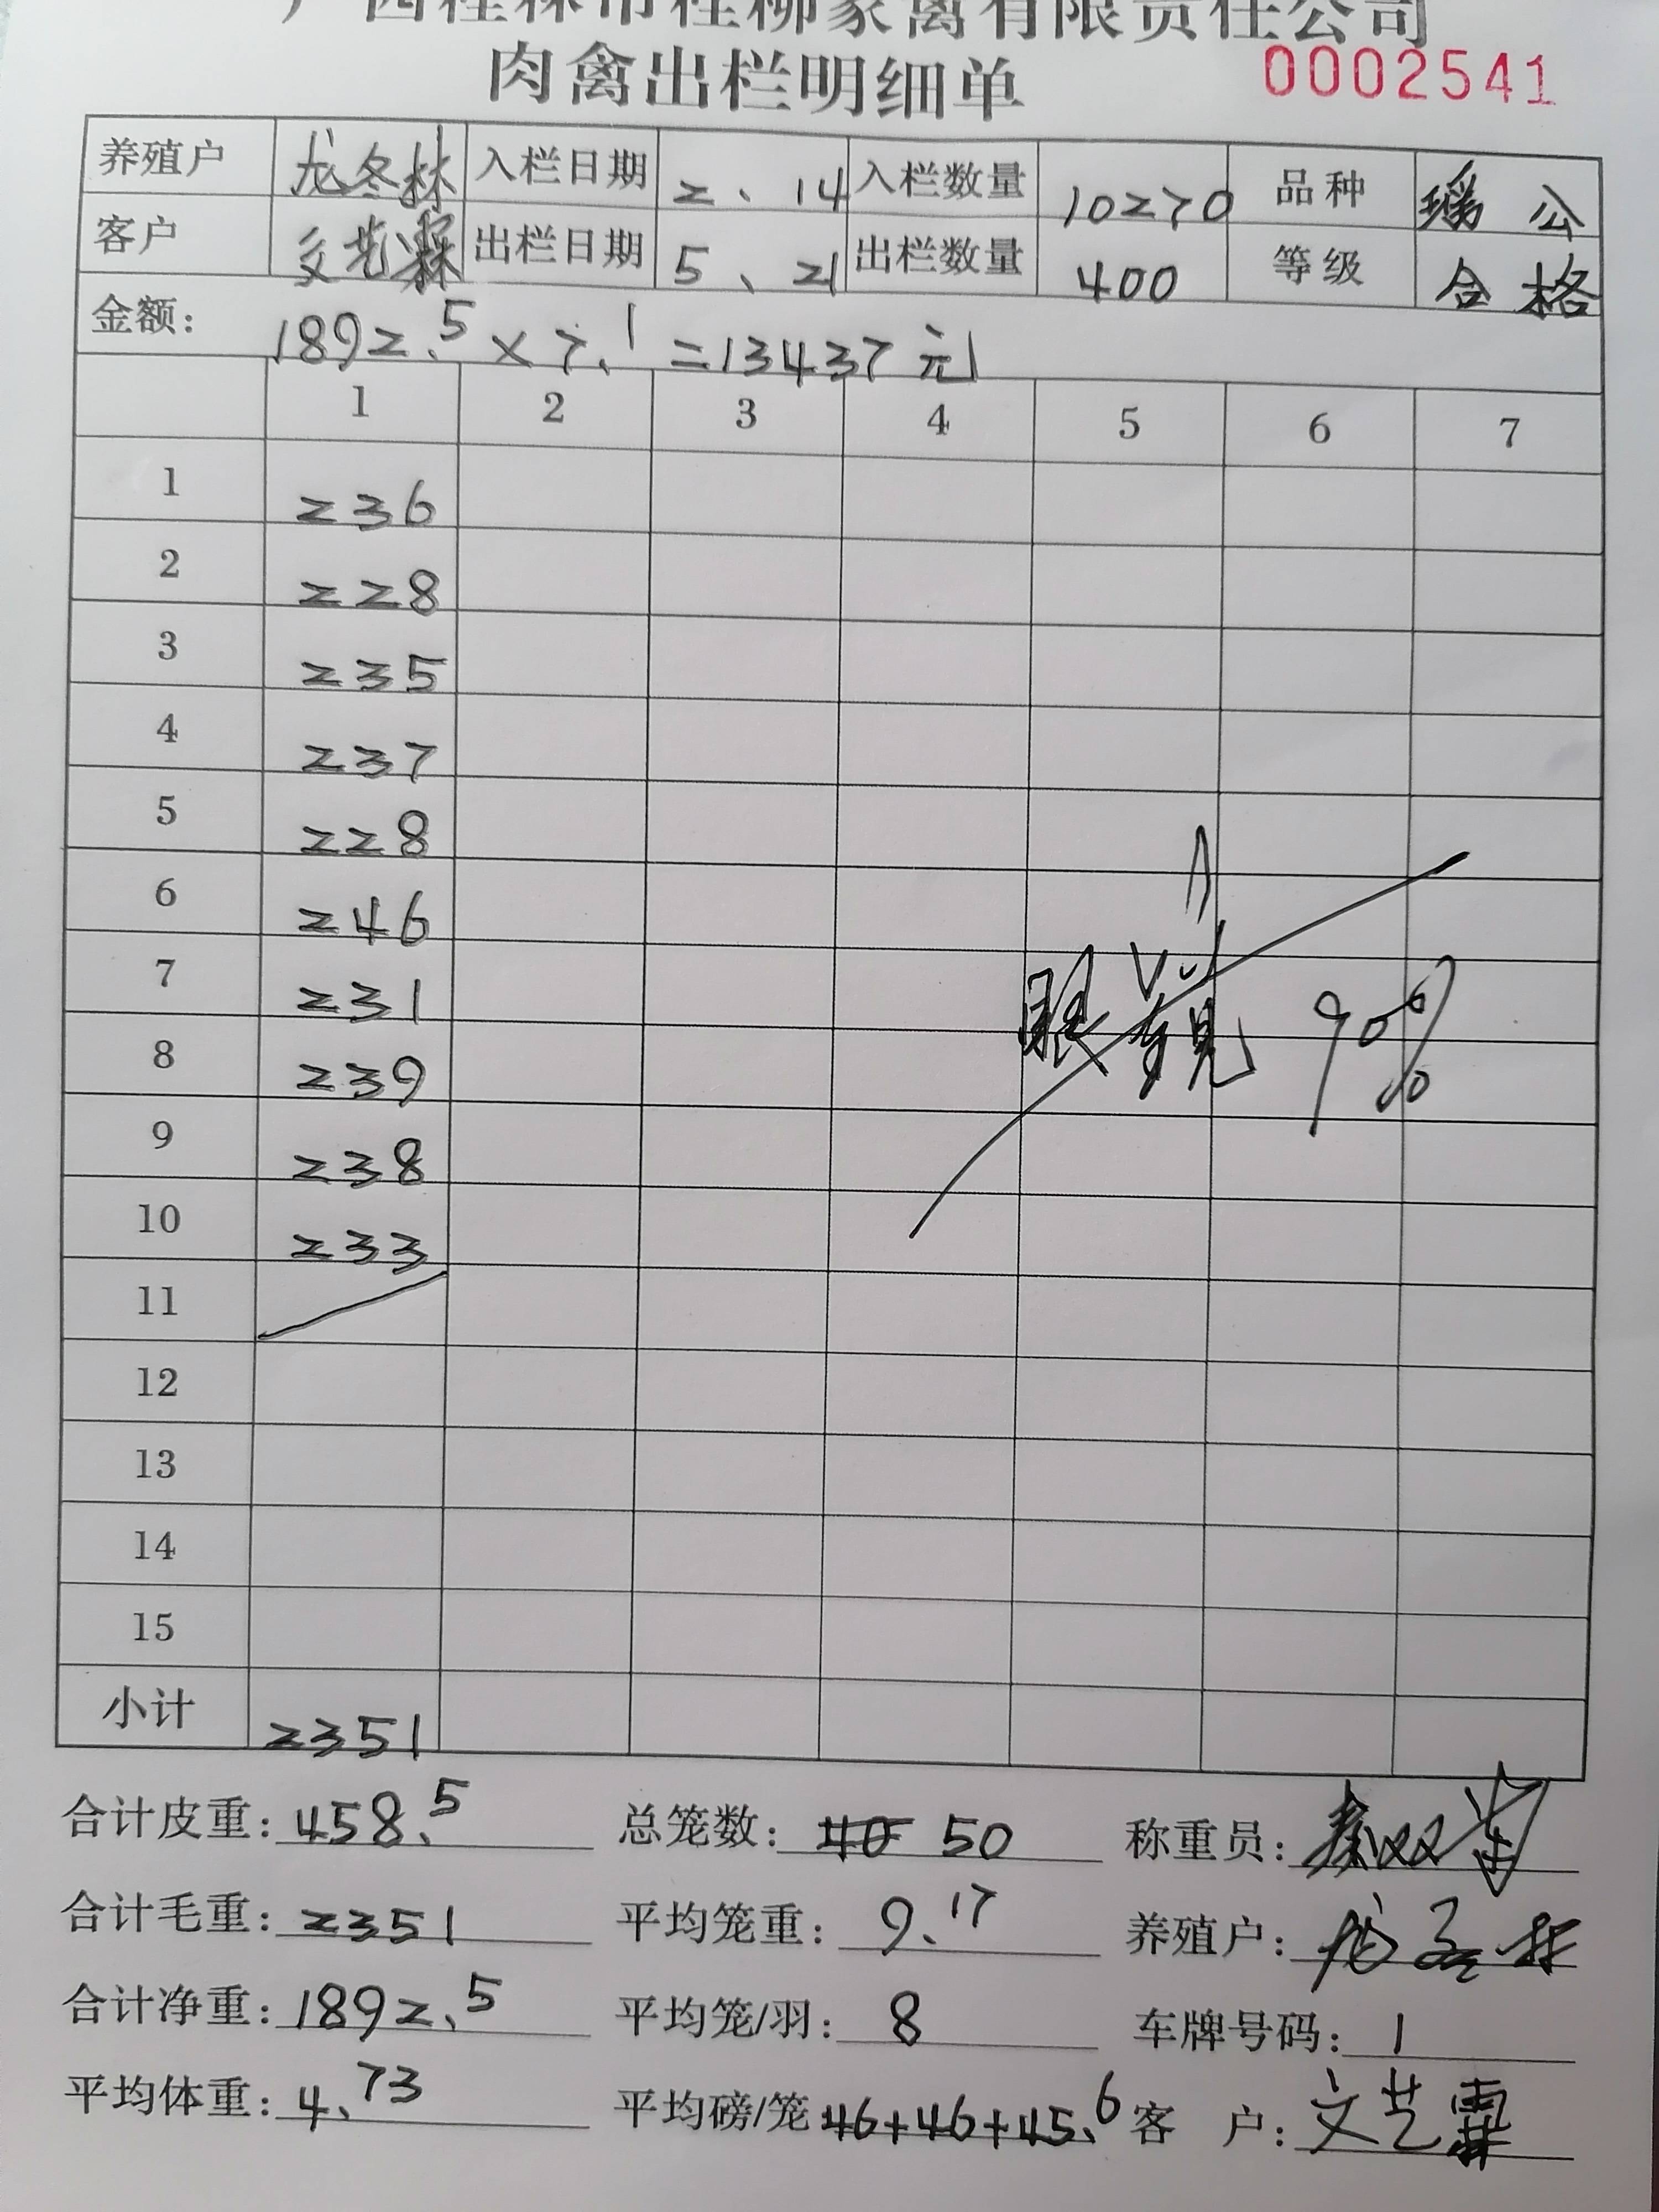 广西桂林市桂柳家禽有限责任公司
肉禽出栏明细单 0002541
养殖户 龙冬林 入栏日期 2、14 入栏数量 10270 品种 瑶公
客户 文艺霖 出栏日期 5、21 出栏数量 400 等级 合格
金额: 1892.5×7.1=13437元
1 2 3 4 5 6 7
1 236
2 228
3 235
4 237
5 228
6 246
7 231
8 239
9 238
10 233
11
12
13
14
15
90%
小计 2351
合计皮重: 458.5 总笼数: 50 称重员:
合计毛重: 2351 平均笼重: 9.17 养殖户:
合计净重: 1892.5 平均笼/羽: 8 车牌号码: 1
平均体重: 4.73 平均磅/笼 46+46+45.6 客 户: 文艺霖